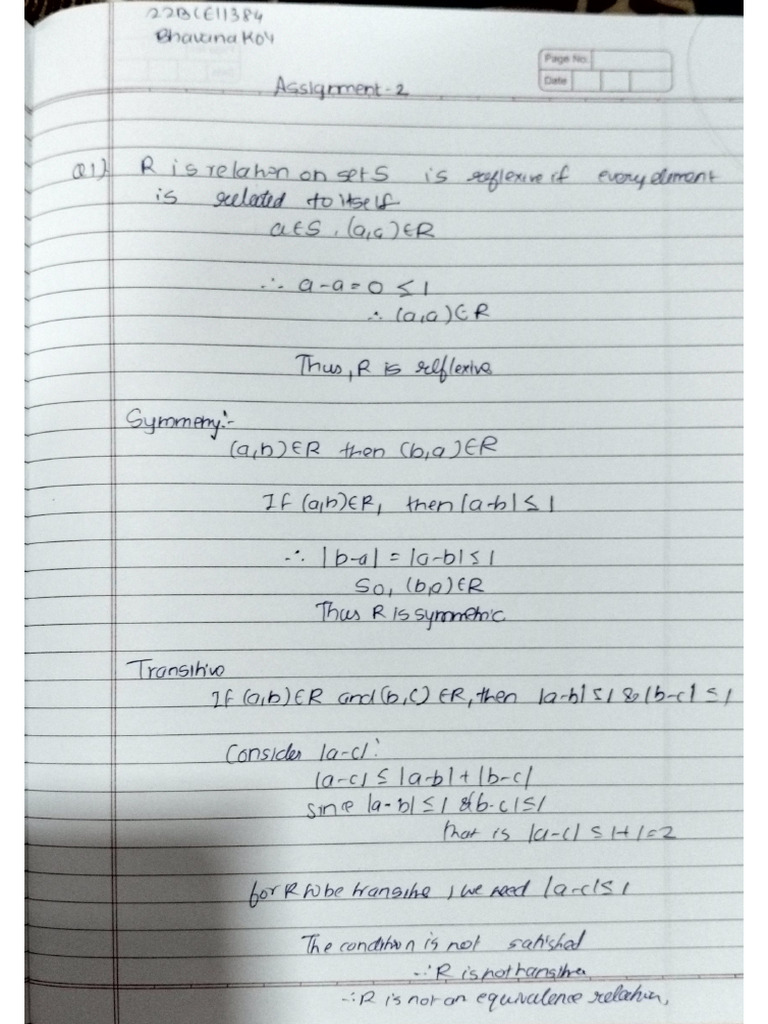 22BCE11384
Bhavana Koy
Page No.
Date
Assignment-2
Q1) R is relation on set S is reflexive if every element
is related to itself
a∈S, (a,a)∈R
∴ a-a=0 ≤1
∴ (a,a)∈R
Thus, R is reflexive
Symmetry:-
(a,b)∈R then (b,a)∈R
If (a,b)∈R, then |a-b|≤1
∴ |b-a| = |a-b|≤1
So, (b,a)∈R
Thus R is symmetric
Transitive
If (a,b)∈R and (b,c)∈R, then |a-b|≤1 & |b-c|≤1
Consider |a-c|:
|a-c| ≤ |a-b|+|b-c|
since |a-b|≤1 & |b-c|≤1
that is |a-c| ≤1+1=2
for R to be transitive, we need |a-c|≤1
The condition is not satisfied
∴ R is not transitive
∴ R is not an equivalence relation,